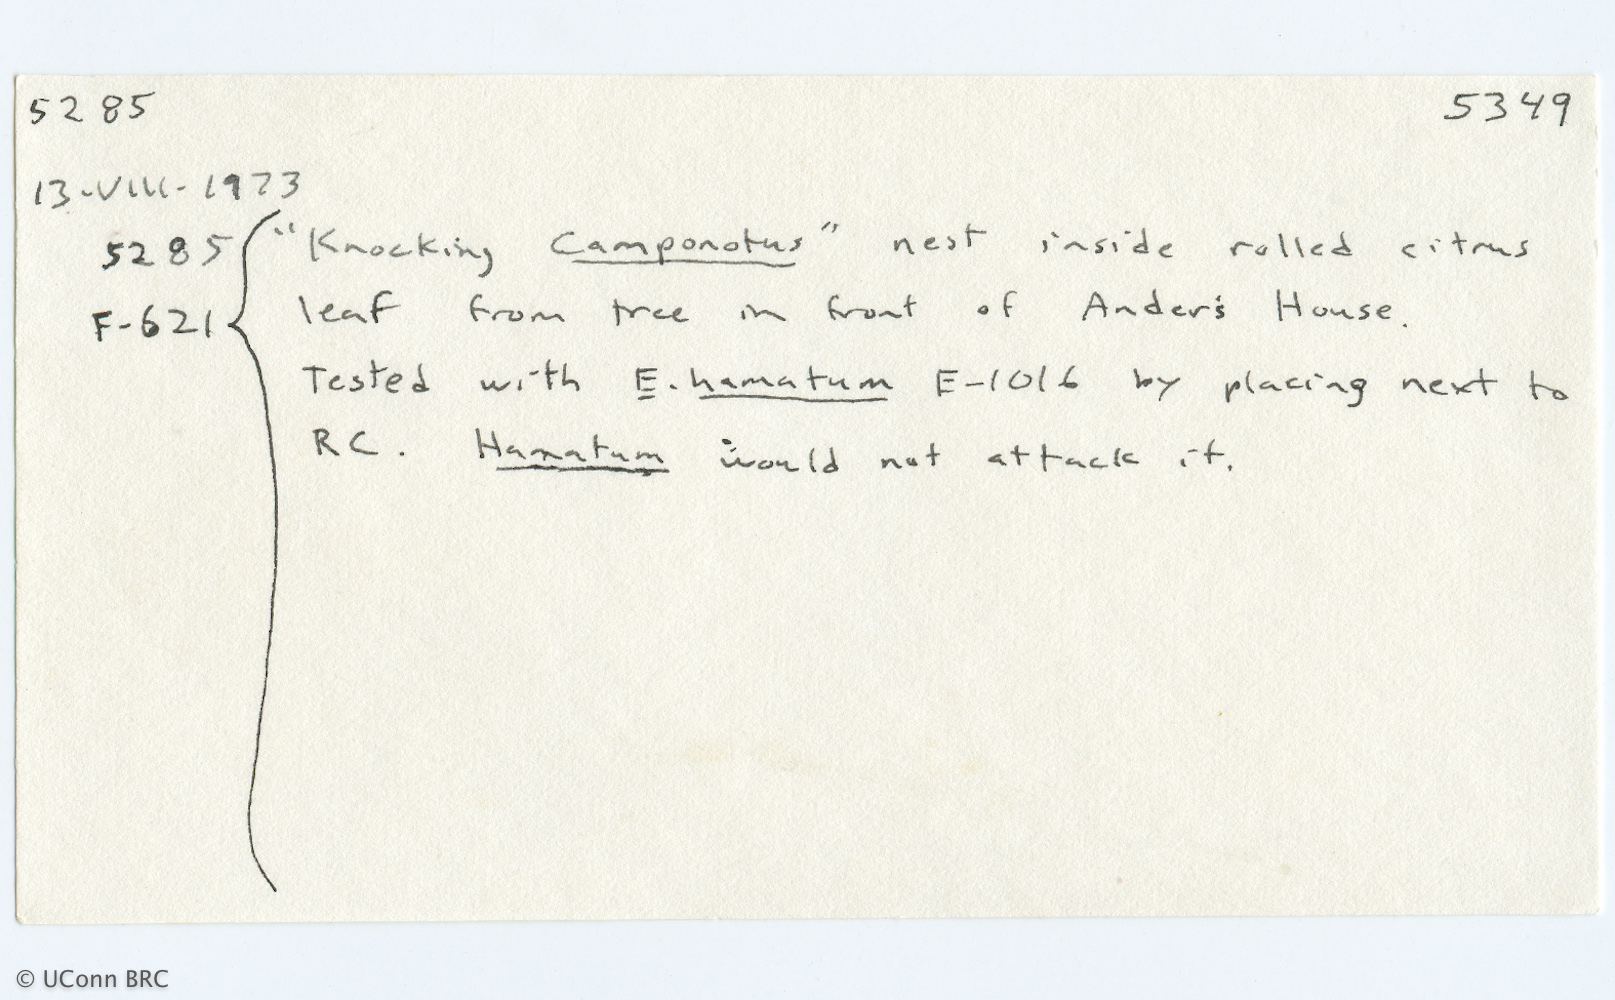 5285 5349
13-VIII-1973
5285 "Knocking Camponotus" nest inside rolled citrus
F-621 leaf from tree in front of Ander's House.
Tested with E. hamatum E-1016 by placing next to
RC. Hamatum would not attack it.
© UConn BRC